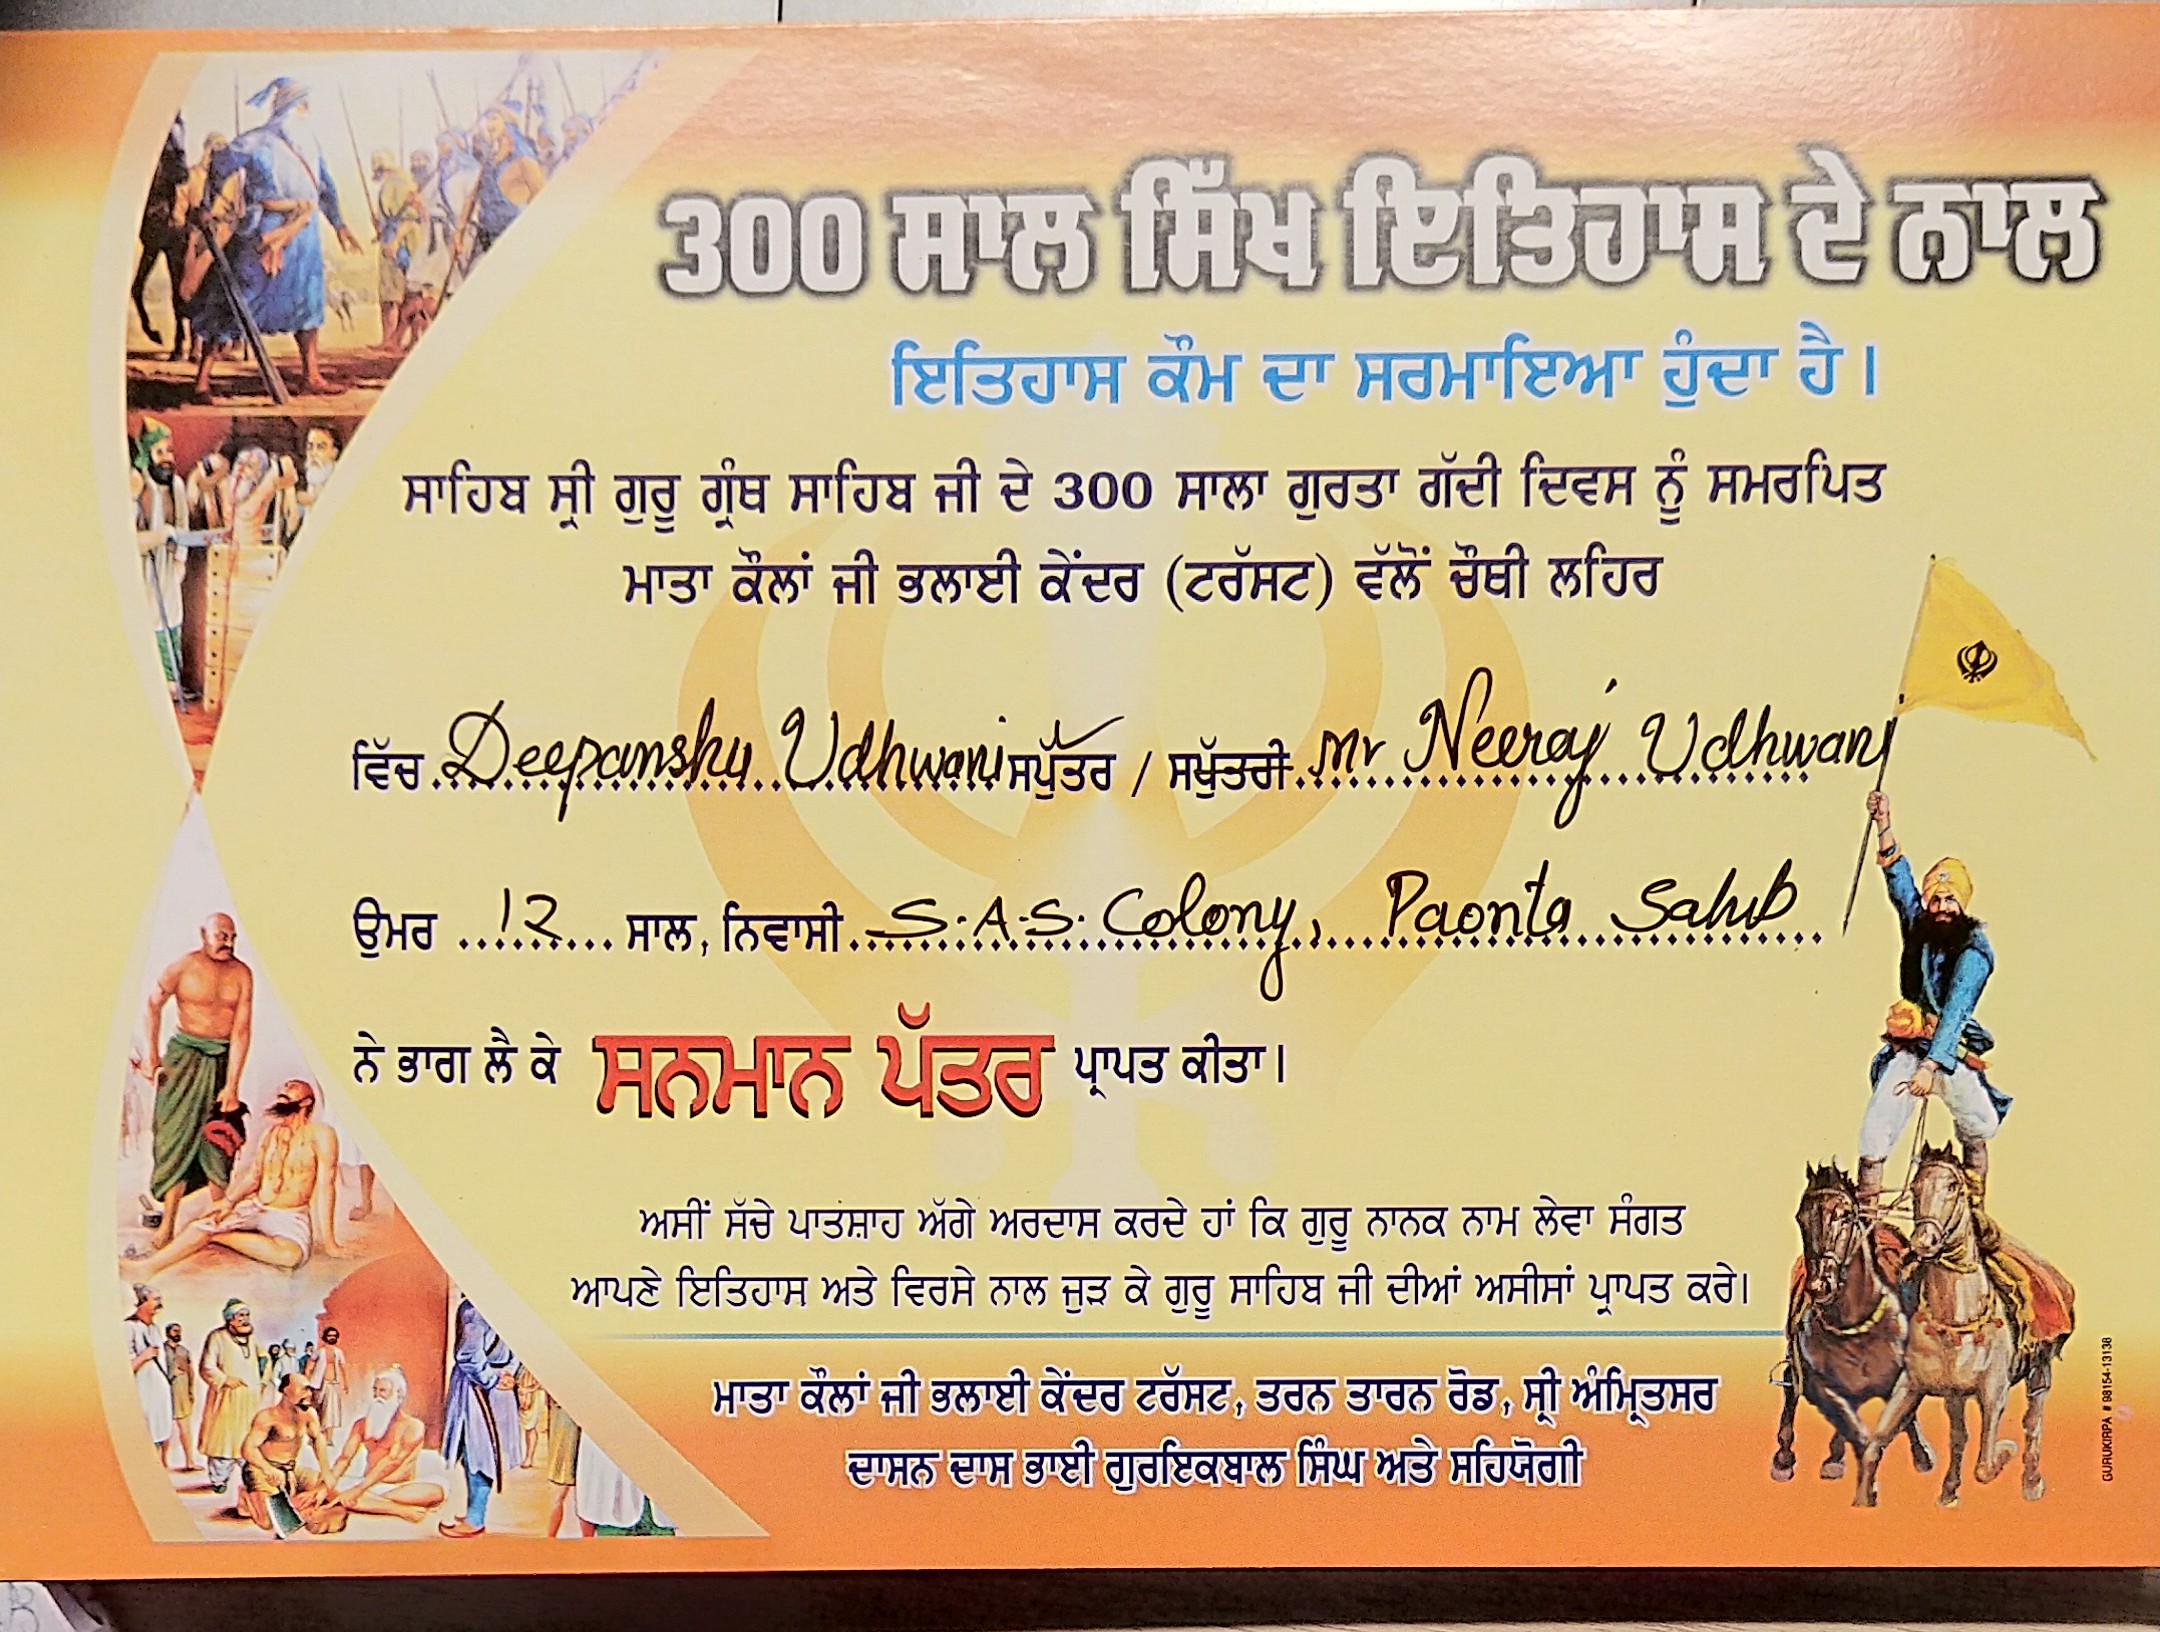 300 ਸਾਲ ਸਿੱਖ ਇਤਿਹਾਸ ਦੇ ਨਾਲ
ਇਤਿਹਾਸ ਕੌਮ ਦਾ ਸਰਮਾਇਆ ਹੁੰਦਾ ਹੈ।
ਸਾਹਿਬ ਸ੍ਰੀ ਗੁਰੂ ਗ੍ਰੰਥ ਸਾਹਿਬ ਜੀ ਦੇ 300 ਸਾਲਾ ਗੁਰਤਾ ਗੱਦੀ ਦਿਵਸ ਨੂੰ ਸਮਰਪਿਤ
ਮਾਤਾ ਕੌਲਾਂ ਜੀ ਭਲਾਈ ਕੇਂਦਰ (ਟਰੱਸਟ) ਵੱਲੋਂ ਚੌਥੀ ਲਹਿਰ
ਵਿੱਚ Deepanshu Udhwani ਸਪੁੱਤਰ / ਸਪੁੱਤਰੀ Mr Neeraj Udhwani
ਉਮਰ 12 ਸਾਲ, ਨਿਵਾਸੀ S.A.S. Colony, Paonta Sahib
ਨੇ ਭਾਗ ਲੈ ਕੇ ਸਨਮਾਨ ਪੱਤਰ ਪ੍ਰਾਪਤ ਕੀਤਾ।
ਅਸੀਂ ਸੱਚੇ ਪਾਤਸ਼ਾਹ ਅੱਗੇ ਅਰਦਾਸ ਕਰਦੇ ਹਾਂ ਕਿ ਗੁਰੂ ਨਾਨਕ ਨਾਮ ਲੇਵਾ ਸੰਗਤ
ਆਪਣੇ ਇਤਿਹਾਸ ਅਤੇ ਵਿਰਸੇ ਨਾਲ ਜੁੜ ਕੇ ਗੁਰੂ ਸਾਹਿਬ ਜੀ ਦੀਆਂ ਅਸੀਸਾਂ ਪ੍ਰਾਪਤ ਕਰੇ।
ਮਾਤਾ ਕੌਲਾਂ ਜੀ ਭਲਾਈ ਕੇਂਦਰ ਟਰੱਸਟ, ਤਰਨ ਤਾਰਨ ਰੋਡ, ਸ੍ਰੀ ਅੰਮ੍ਰਿਤਸਰ
ਦਾਸਨ ਦਾਸ ਭਾਈ ਗੁਰਇਕਬਾਲ ਸਿੰਘ ਅਤੇ ਸਹਿਯੋਗੀ
GURUKIRPA # 98154-13138